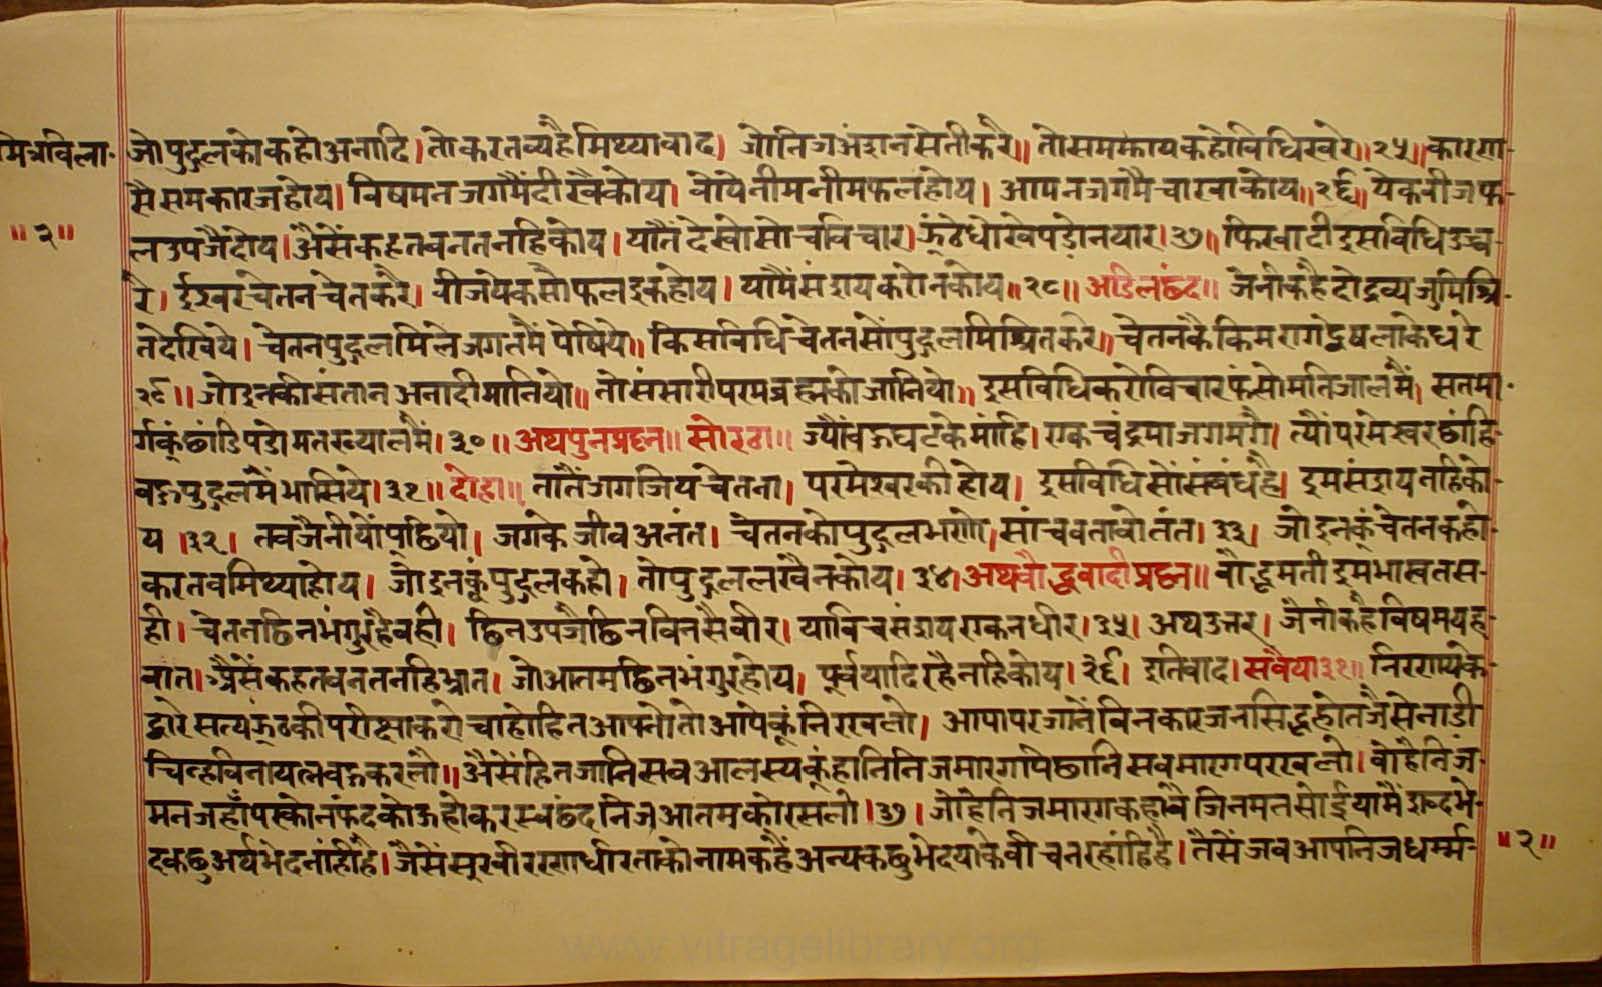 मित्रविला-
॥२॥
जो पुद्गल को कहो अनादि। तो करतव्य है मिथ्यावाद। जो निज अंशन सेती करै॥ तो सममाय कहो विधि खरे॥२५॥ कारण-
सै सम कारज होय। विषम न जग मैं दीखै कोय। वोये नीम नीम फल होय। आमन जग मै चाखा कोय॥२६॥ येक बीज फ-
ल उपजै दोय। अैसैं कहत वनत नहि कोय। यातैं देखो सोच विचार। झूंठे धोखे पडो न यार।२७॥ फिर वादी इस विधि उच्च-
रै। ईश्वर चेतन चेत करै। वीज येकसौ फल इक होय। यामैं संशय करो न कोय॥२८॥ अडिल छंद॥ जैनी कहै दो द्रव्य जु मिश्रि-
त देखिये। चेतन पुद्गल मिले जगत मैं पेषिये॥ किस विधि चेतन सों पुद्गल मिश्रित करे॥ चेतन कै किम राग द्वेष लाके धरे
२९॥ जो इनकी संतान अनादी मानियो॥ तो संसारी परम ब्रह्म को जानियो॥ इस विधि करो विचार फंसो मति जाल मैं। सतमा-
र्ग कूं छांडि पडो मत ख्याल मैं।३०॥ अथ पुन प्रश्न॥ सोरठा॥ ज्यौं वहु घट के मांहि। एक चंद्रमा जगमगै। त्यौं परमेस्वर छांहि
वहु पुद्गल मैं भासिये।३१॥ दोहा॥ तातैं जग जिय चेतना। परमेश्वर की होय। इस विधि सों संवंध है। इम संशय नहि को-
य।३२। तव जैनी यों पूछियो। जग के जीव अनंत। चेतन को पुद्गल भणो। सांच वतावो तंत।३३। जो इनकूं चेतन कहो
करतव मिथ्या होय। जो इनकूं पुद्गल कहो। तो पुद्गल लखै न कोय।३४। अथ वौद्ध वादी प्रछन॥ वौद्धमती इम भाखत स-
ही। चेतन छिनभंगुर है वही। छिन उपजै छिन विनसै वीर। या विच संशय राक न धीर।३५। अथ उत्तर। जैनी कहै विषम यह
वात। अैसैं कहत वनत नहि भ्रात। जो आतम छिनभंगुर होय। पूर्व यादि रहै नहि कोय।३६। इतिवाद। सवैया ३१॥ निरणय के
द्वारे सत्य झूठ की परीक्षा करो चाहो हित आपनो तो आपेकूं निरखलो। आपा पर जानें विन कारज न सिद्ध होत जैसे नाडी
चिन्ह विना यत्न वहु करलौ॥ अैसें हित जानि सव आलस्यकूं हानि निज मारग पिछानि सव मारग परखलो। वो है निरंज-
मन जहाँ पर को न फंद कोऊ होकर स्वछंद निज आतम को रस लो।३७। जो है निज मारग कहावै जिनमत सोई यामैं शब्द भे-
द कछु अर्थ भेद नांही है। जैसें सूर वीर रणधीर ताको नाम कहैं अन्य कछु भेद याके वीच न रहांहि है। तैसें जव आप निज धर्म्म-
॥२॥
www.vitragelibrary.org